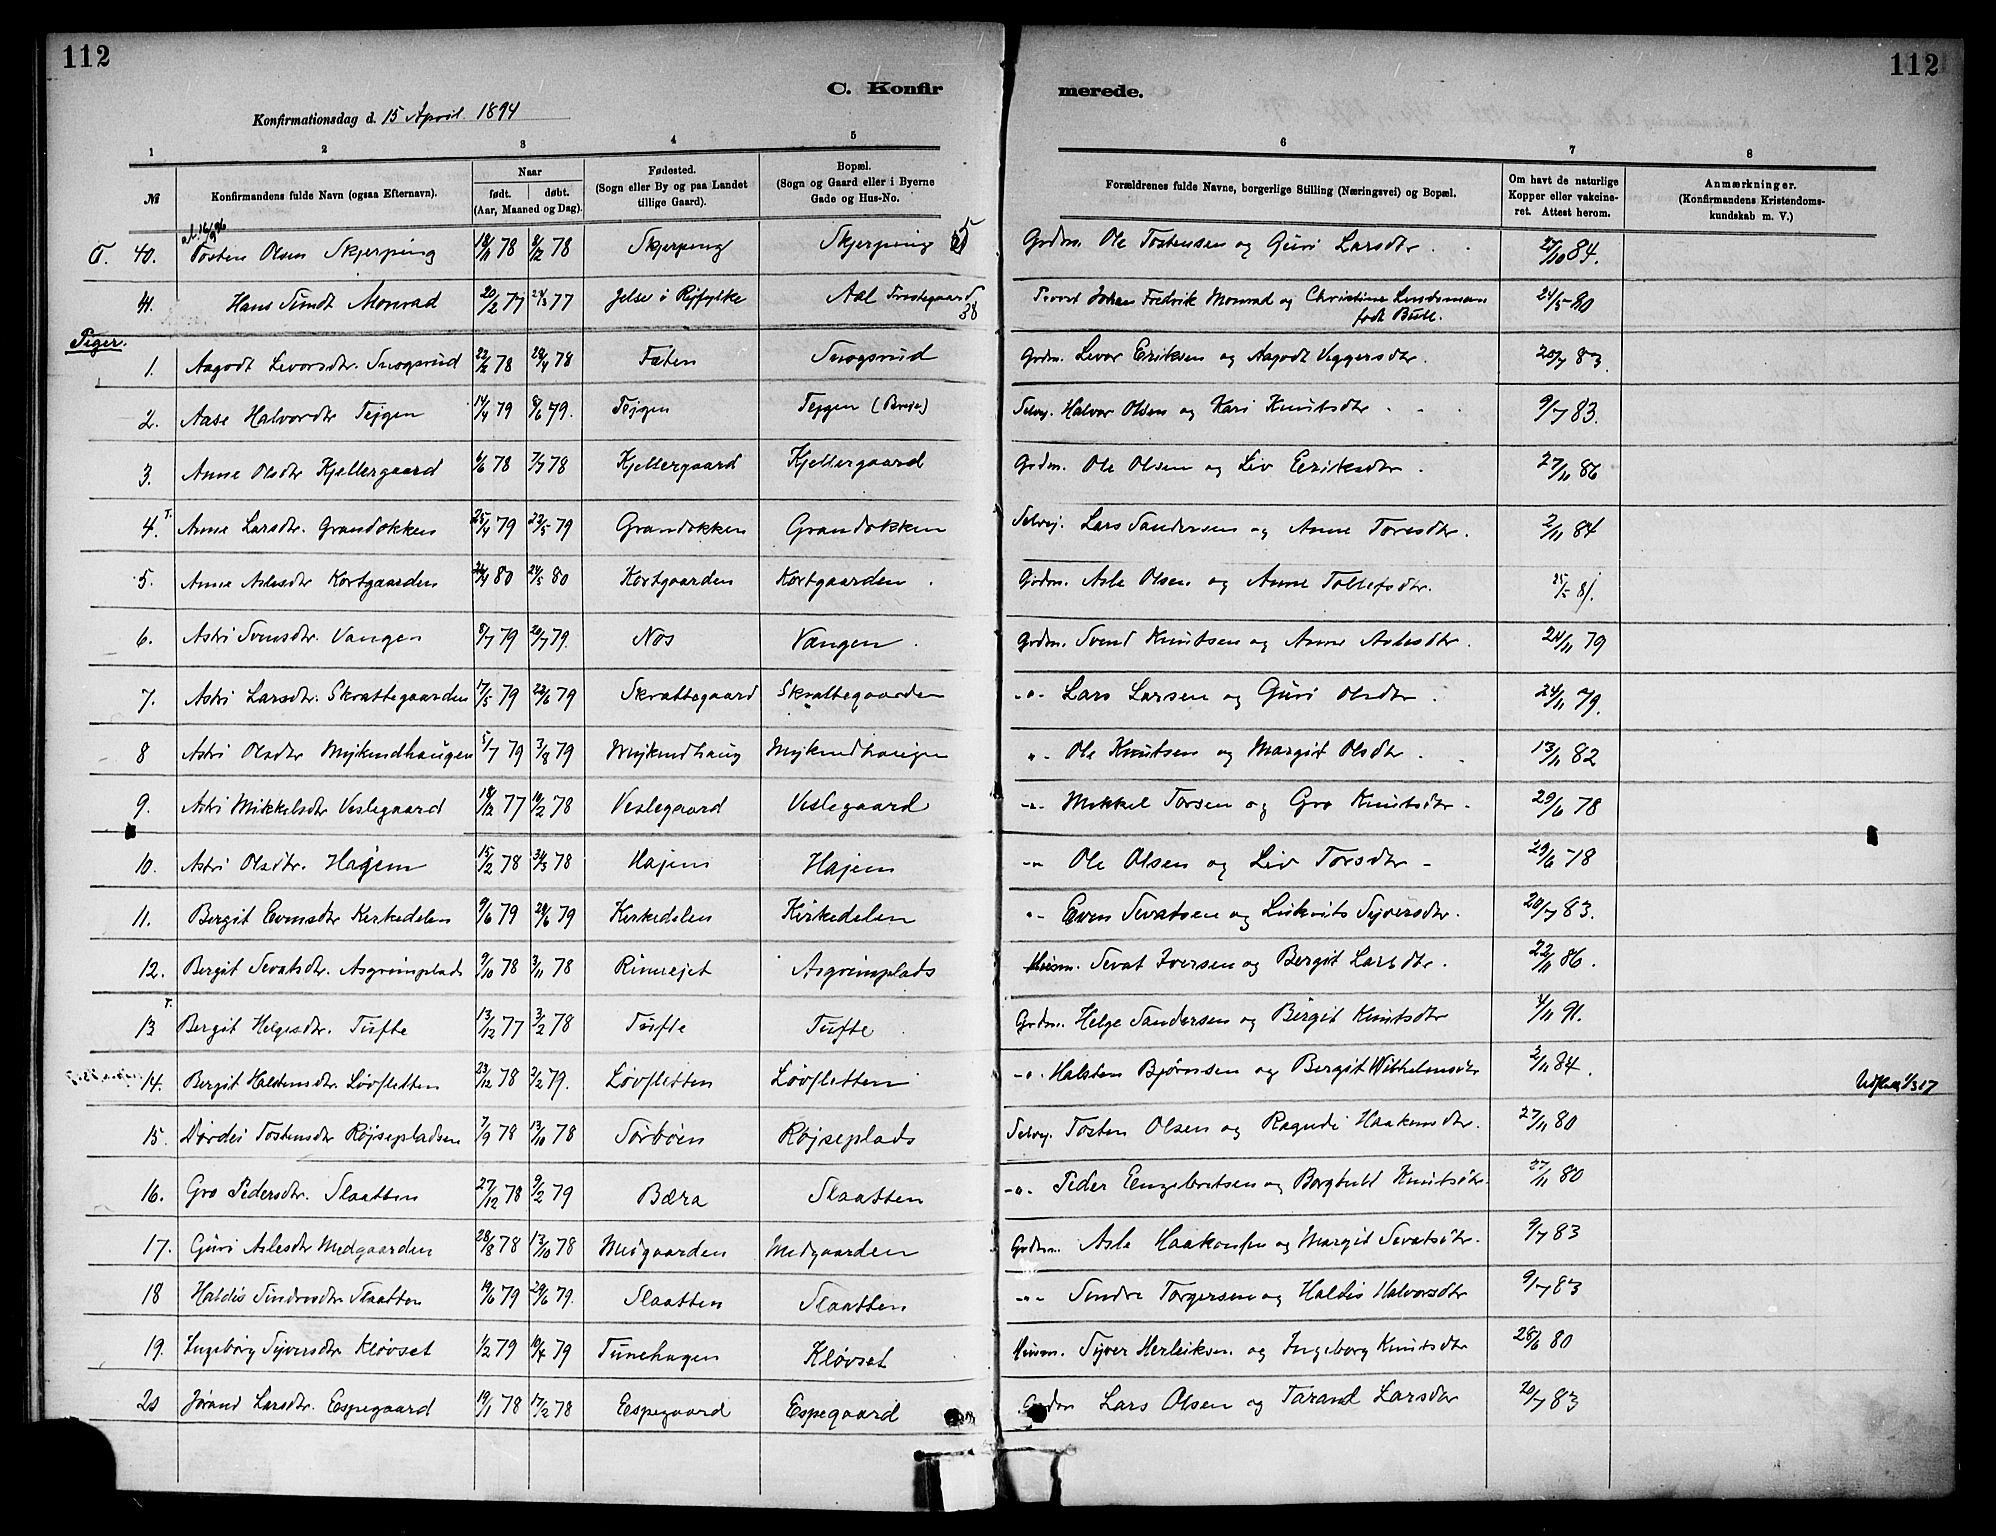 112
112
C. Konfirmerede.
Konfirmationsdag d. 15 April. 1894
1 2 3 4 5 6 7 8
№ Konfirmandens fulde Navn (ogsaa Efternavn). Naar født. døbt. (Aar, Maaned og Dag). Fødested. (Sogn eller By og paa Landet tillige Gaard). Bopæl. (Sogn og Gaard eller i Byerne Gade og Hus-No. Forældrenes fulde Navne, borgerlige Stilling (Næringsvei) og Bopæl. Om havt de naturlige Kopper eller vakcineret. Attest herom. Anmærkninger. (Konfirmandens Kristendomskundskab m. V.)
T. 40. Tosten Olsen Skjerping 18/11 78 8/12 78 Skjerping Skjerping Grdm. Ole Tostensen og Guri Larsdtr. 27/10 84.
41. Hans Sundt Monrad 20/2 77 77 Jelse i Ryfylke Aal Prestegaard Provst Johan Fredrik Monrad og Christine Lindeman født Bull. 24/5 80
38
Piger.
1. Aagodt Levorsdtr. Snogsrud 22/2 78 28/4 78 Fæten Snogsrud Grdm. Levor Eriksen og Aagodt Viggersdtr. 20/7 83.
2. Aase Halvordtr Tejgen 14/4 79 8/6 79. Tejgen Tejgen (Breie) Selvej. Halvor Olsen og Kari Knutsdtr 9/7 83.
3. Anne Olsdtr Kjellergaard 6/6 78 7/7 78 Kjellergaard Kjellergaard Grdm. Ole Olsen og Liv Eriksdtr. 27/11 86
4. T. Anne Larsdtr. Grandokken 25/4 79 22/5 79 Grandokken Grandokken Selvej. Lars Sandersen og Anne Toresdtr. 2/11 84
5. Anne Aslesdtr Kortgaarden 80 24/5 80 Kortgaarden Kortgaarden. Grdm. Asle Olsen og Anne Tollefsdtr. 25/5 81.
6. Astri Svensdtr. Vangen 8/7 79 20/7 79. Nos Vangen. Grdm. Svend Knutsen og Anne Aslesdtr. 24/11 79
7. Astri Larsdtr. Skrattegaarden 17/5 79 22/6 79 Skrattegaard Skrattegaarden -"- Lars Larsen og Guri Olsdtr. 24/11 79.
8 Astri Olsdtr Mykindhaugen 5/7 79 3/8 79 Mykindhaug Mykindhaugen "- Ole Knutsen og Margit Olsdtr. 13/11 82
9. Astri Mikkelsdtr Veslegaard 18/12 77 10/2 78 Veslegaard Veslegaard -"- Mikkel Torsen og Gro Knutsdtr - 29/6 78
10. Astri Olsdtr. Hagjem 15/2 78 31/3 78 Hajem Hajem -"- Ole Olsen og Liv Torsdtr - 29/6 78
11. Bergit Evensdtr Kirkedelen 9/6 79 29/6 79 Kirkedelen Kirkedelen "- Even Sevatsen og Sijversdtr. 20/7 83.
12. Bergit Sevatsdtr. Asgrimplads 9/10 78 3/11 78 Asgrimplads Husm. Sevat Iversen og Bergit Larsdtr. 22/11 86.
T. 13 Bergit Helgesdtr. Tufte 13/12 77 3/2 78 Tufte Tufte. Grdm. Helge Sandersen og Bergit Knutsdtr 4/11 91.
14. Bergit Halstensdtr. Løvsletten 23/12 78 2/2 79. Løvsletten Løvsletten -"- Halsten Bjørnsen og Bergit Wilhelmsdtr 2/11 84.
15. Dordei Tostensdtr Røjsepladsen 7/9 78 13/10 78 Sørbøen Røjseplads Selvej. Tosten Olsen og Ragndi Haakensdtr. 27/11 80
16. Gro Pedersdtr. Slaatten 27/12 78 9/2 79 Bæra Slaatten -"- Peder Engebretsen og Borghild Knutsdtr. 27/11 80
17. Guri Aslesdtr Medgaarden 28/8 78 13/10 78 Medgaarden Medgaarden Grdm. Asle Haakonsen og Margit Sevatsdtr. 9/7 83
18 Haldis Sindresdtr. Slaatten 19/6 79 29/6 79. Slaatten Slaatten -"- Sindre Torgersen og Haldis Halvorsdtr 9/7 83
19. Ingeborg Sijversdtr Kløvset 1/2 79 79 Tunehagen Kløvset Husm. Sijver Herleiksen og Ingeborg Knutsdtr 28/6 80
20 Jorand Larsdtr. Espegaard 19/1 78 17/2 78 Espegaard Espegaard Grdm Lars Olsen og Tarand Larsdtr 20/7 83